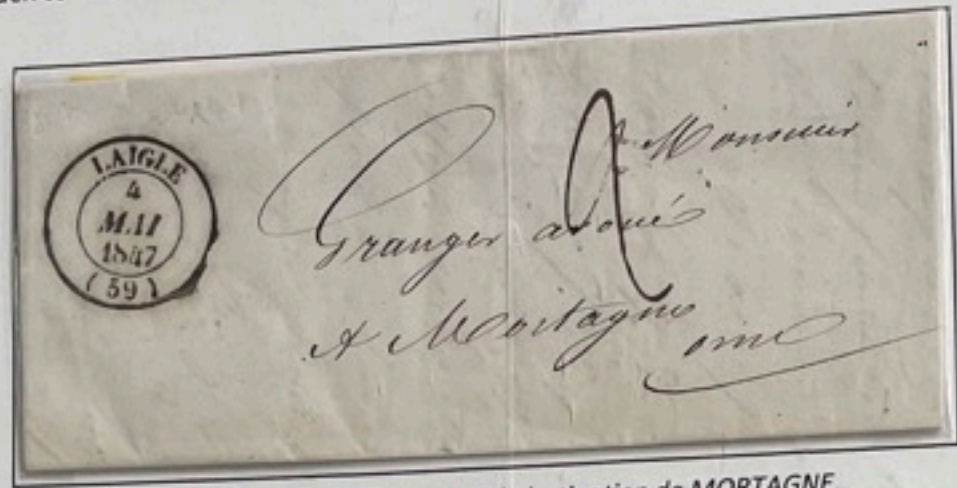 LAIGLE
4
MAI
1847
(59)
2
Monsieur
Granger avoué
A Mortagne
orne
destination de MORTAGNE